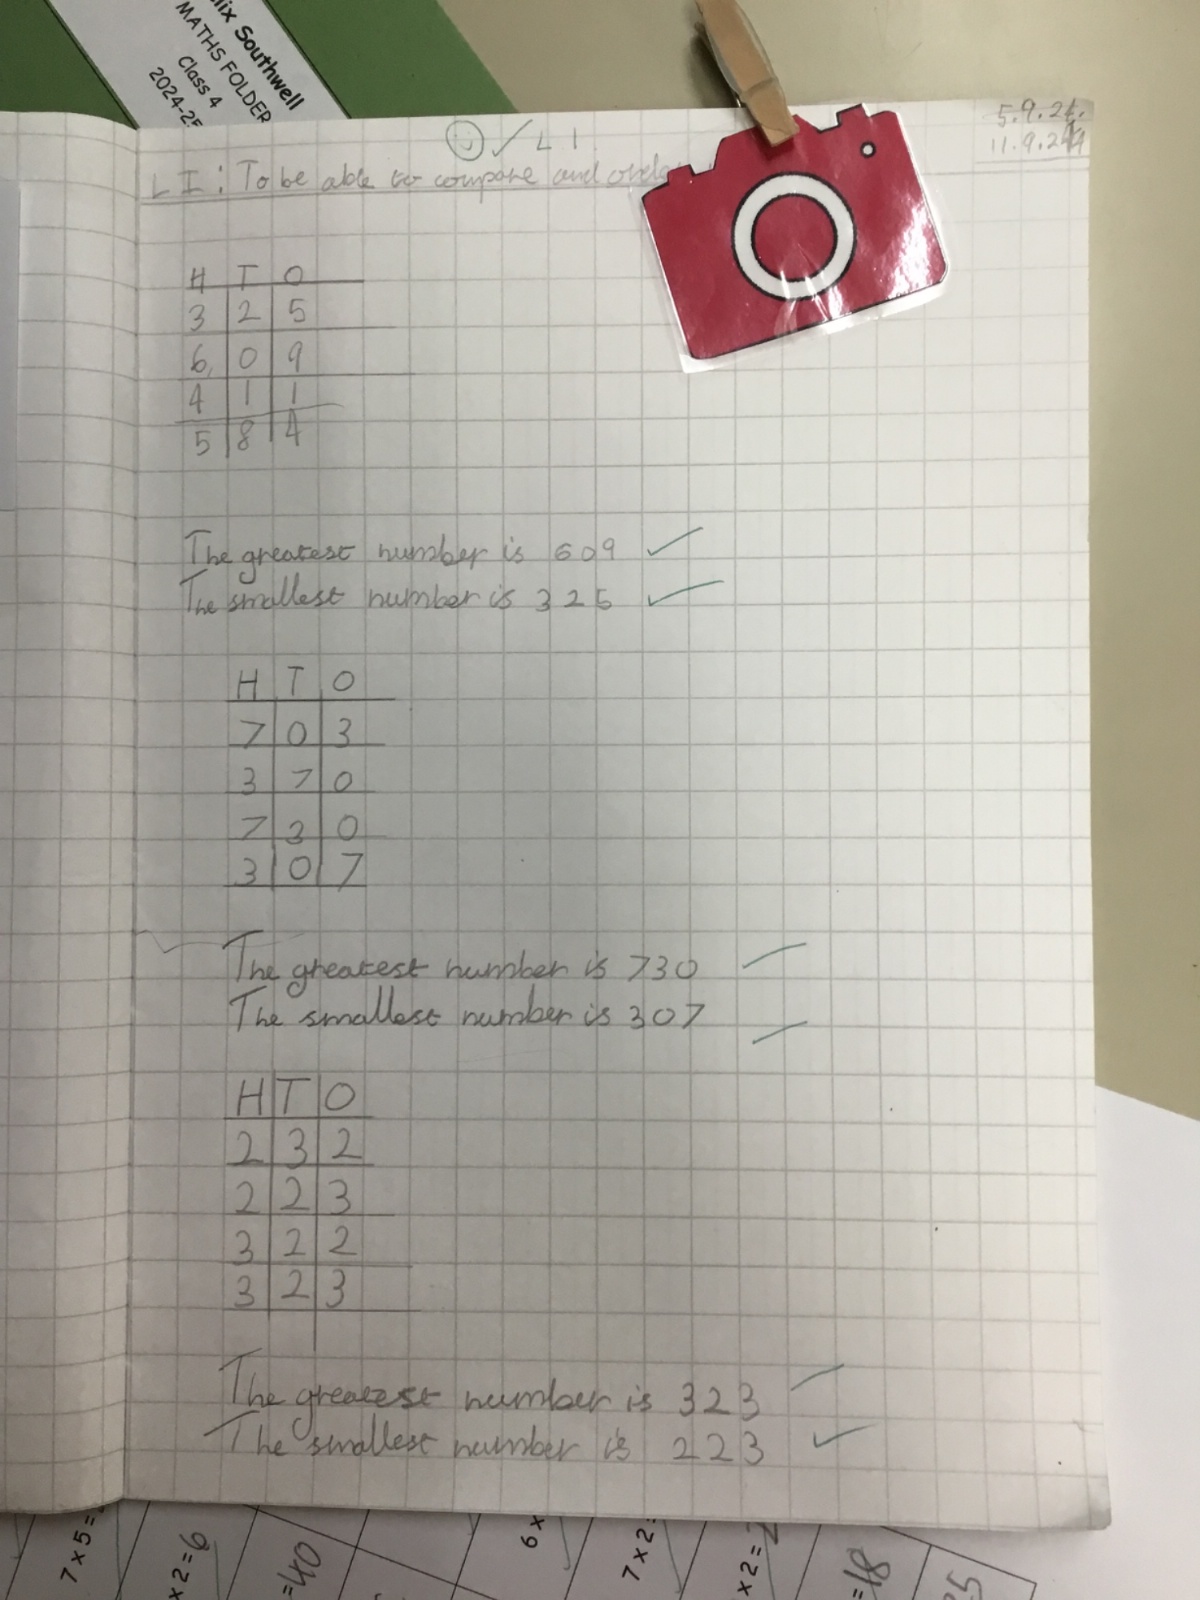 lix Southwell
MATHS FOLDER
Class 4
2024-25
5.9.24.
11.9.24
L I
L I : To be able to compare and orde
H T O
3 2 5
6 0 9
4 1 1
5 8 4
The greatest number is 609
The smallest number is 325
H T O
7 0 3
3 7 0
7 3 0
3 0 7
The greatest number is 730
The smallest number is 307
H T O
2 3 2
2 2 3
3 2 2
3 2 3
The greatest number is 323
The smallest number is 223
7 x 5 =
x 2 = 6
= 40
6 x
7 x 2 =
x 2 =
= 18